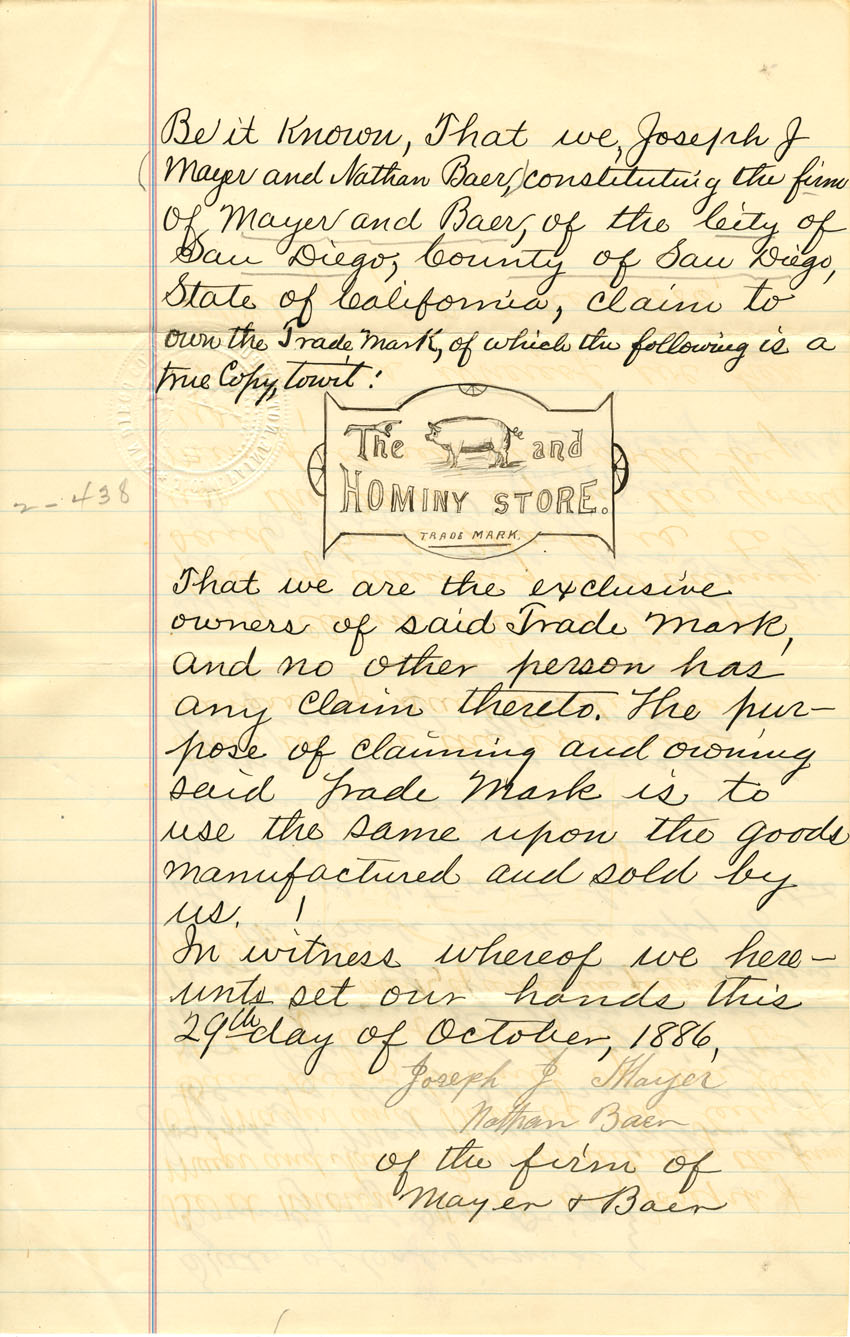 Be it Known, That we, Joseph J
(Mayer and Nathan Baer,) constituting the firm
of Mayer and Baer, of the City of
San Diego, County of San Diego,
State of California, claim to
own the Trade Mark, of which the following is a
true Copy, towit:
The and
HOMINY STORE.
TRADE MARK.
2-438
That we are the exclusive
owners of said Trade Mark,
and no other person has
any claim thereto. The pur-
pose of claiming and owning
said Trade Mark is to
use the same upon the goods
manufactured and sold by
us. !
In witness whereof we here-
unto set our hands this
29th day of October, 1886,
Joseph J Mayer
Nathan Baer
of the firm of
Mayer & Baer